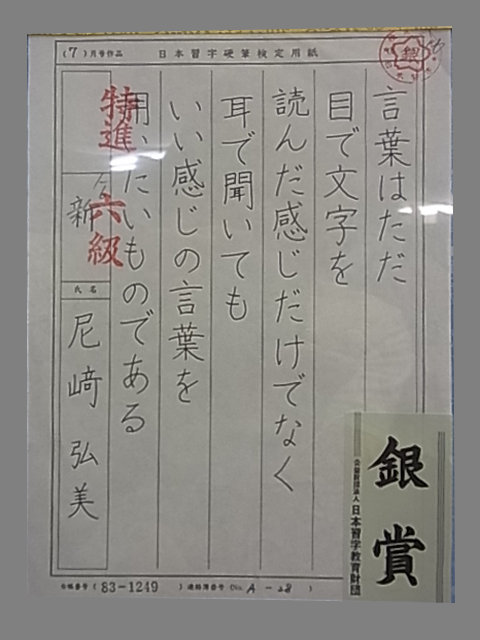 (7)月号作品 日本習字硬筆検定用紙
銀
言葉はただ
目で文字を
読んだ感じだけでなく
耳で聞いても
いい感じの言葉を
用いたいものである
特進
六級
新
氏名
尼﨑弘美
銀賞
公益財団法人 日本習字教育財団
(83-1249)
A-28